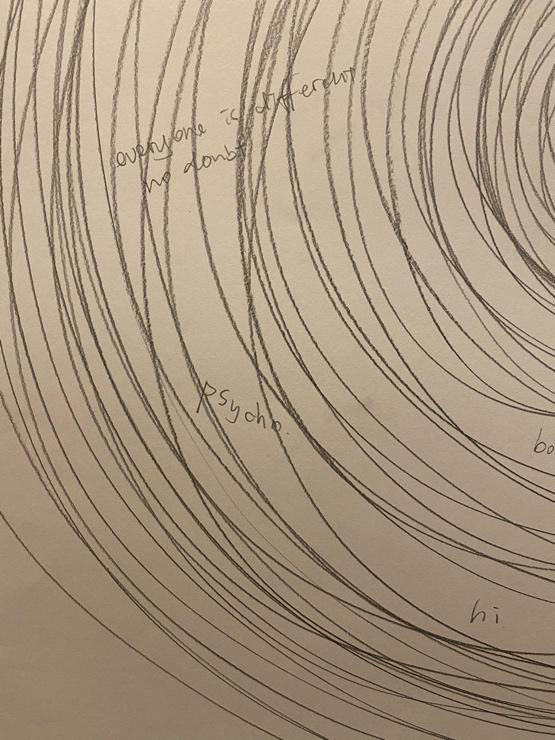 everyone is different
no doubt
psycho.
bo
hi